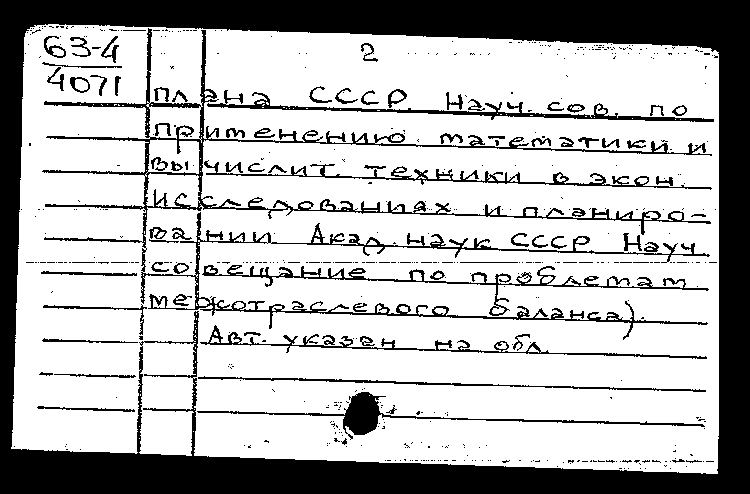 63-4
4071
2
плана СССР. Науч. сов. по
применению математики и
вычислит. техники в экон.
исследованиях и планиро-
вании Акад. наук СССР. Науч.
совещание по проблемам
межотраслевого баланса).
Авт. указан на обл.